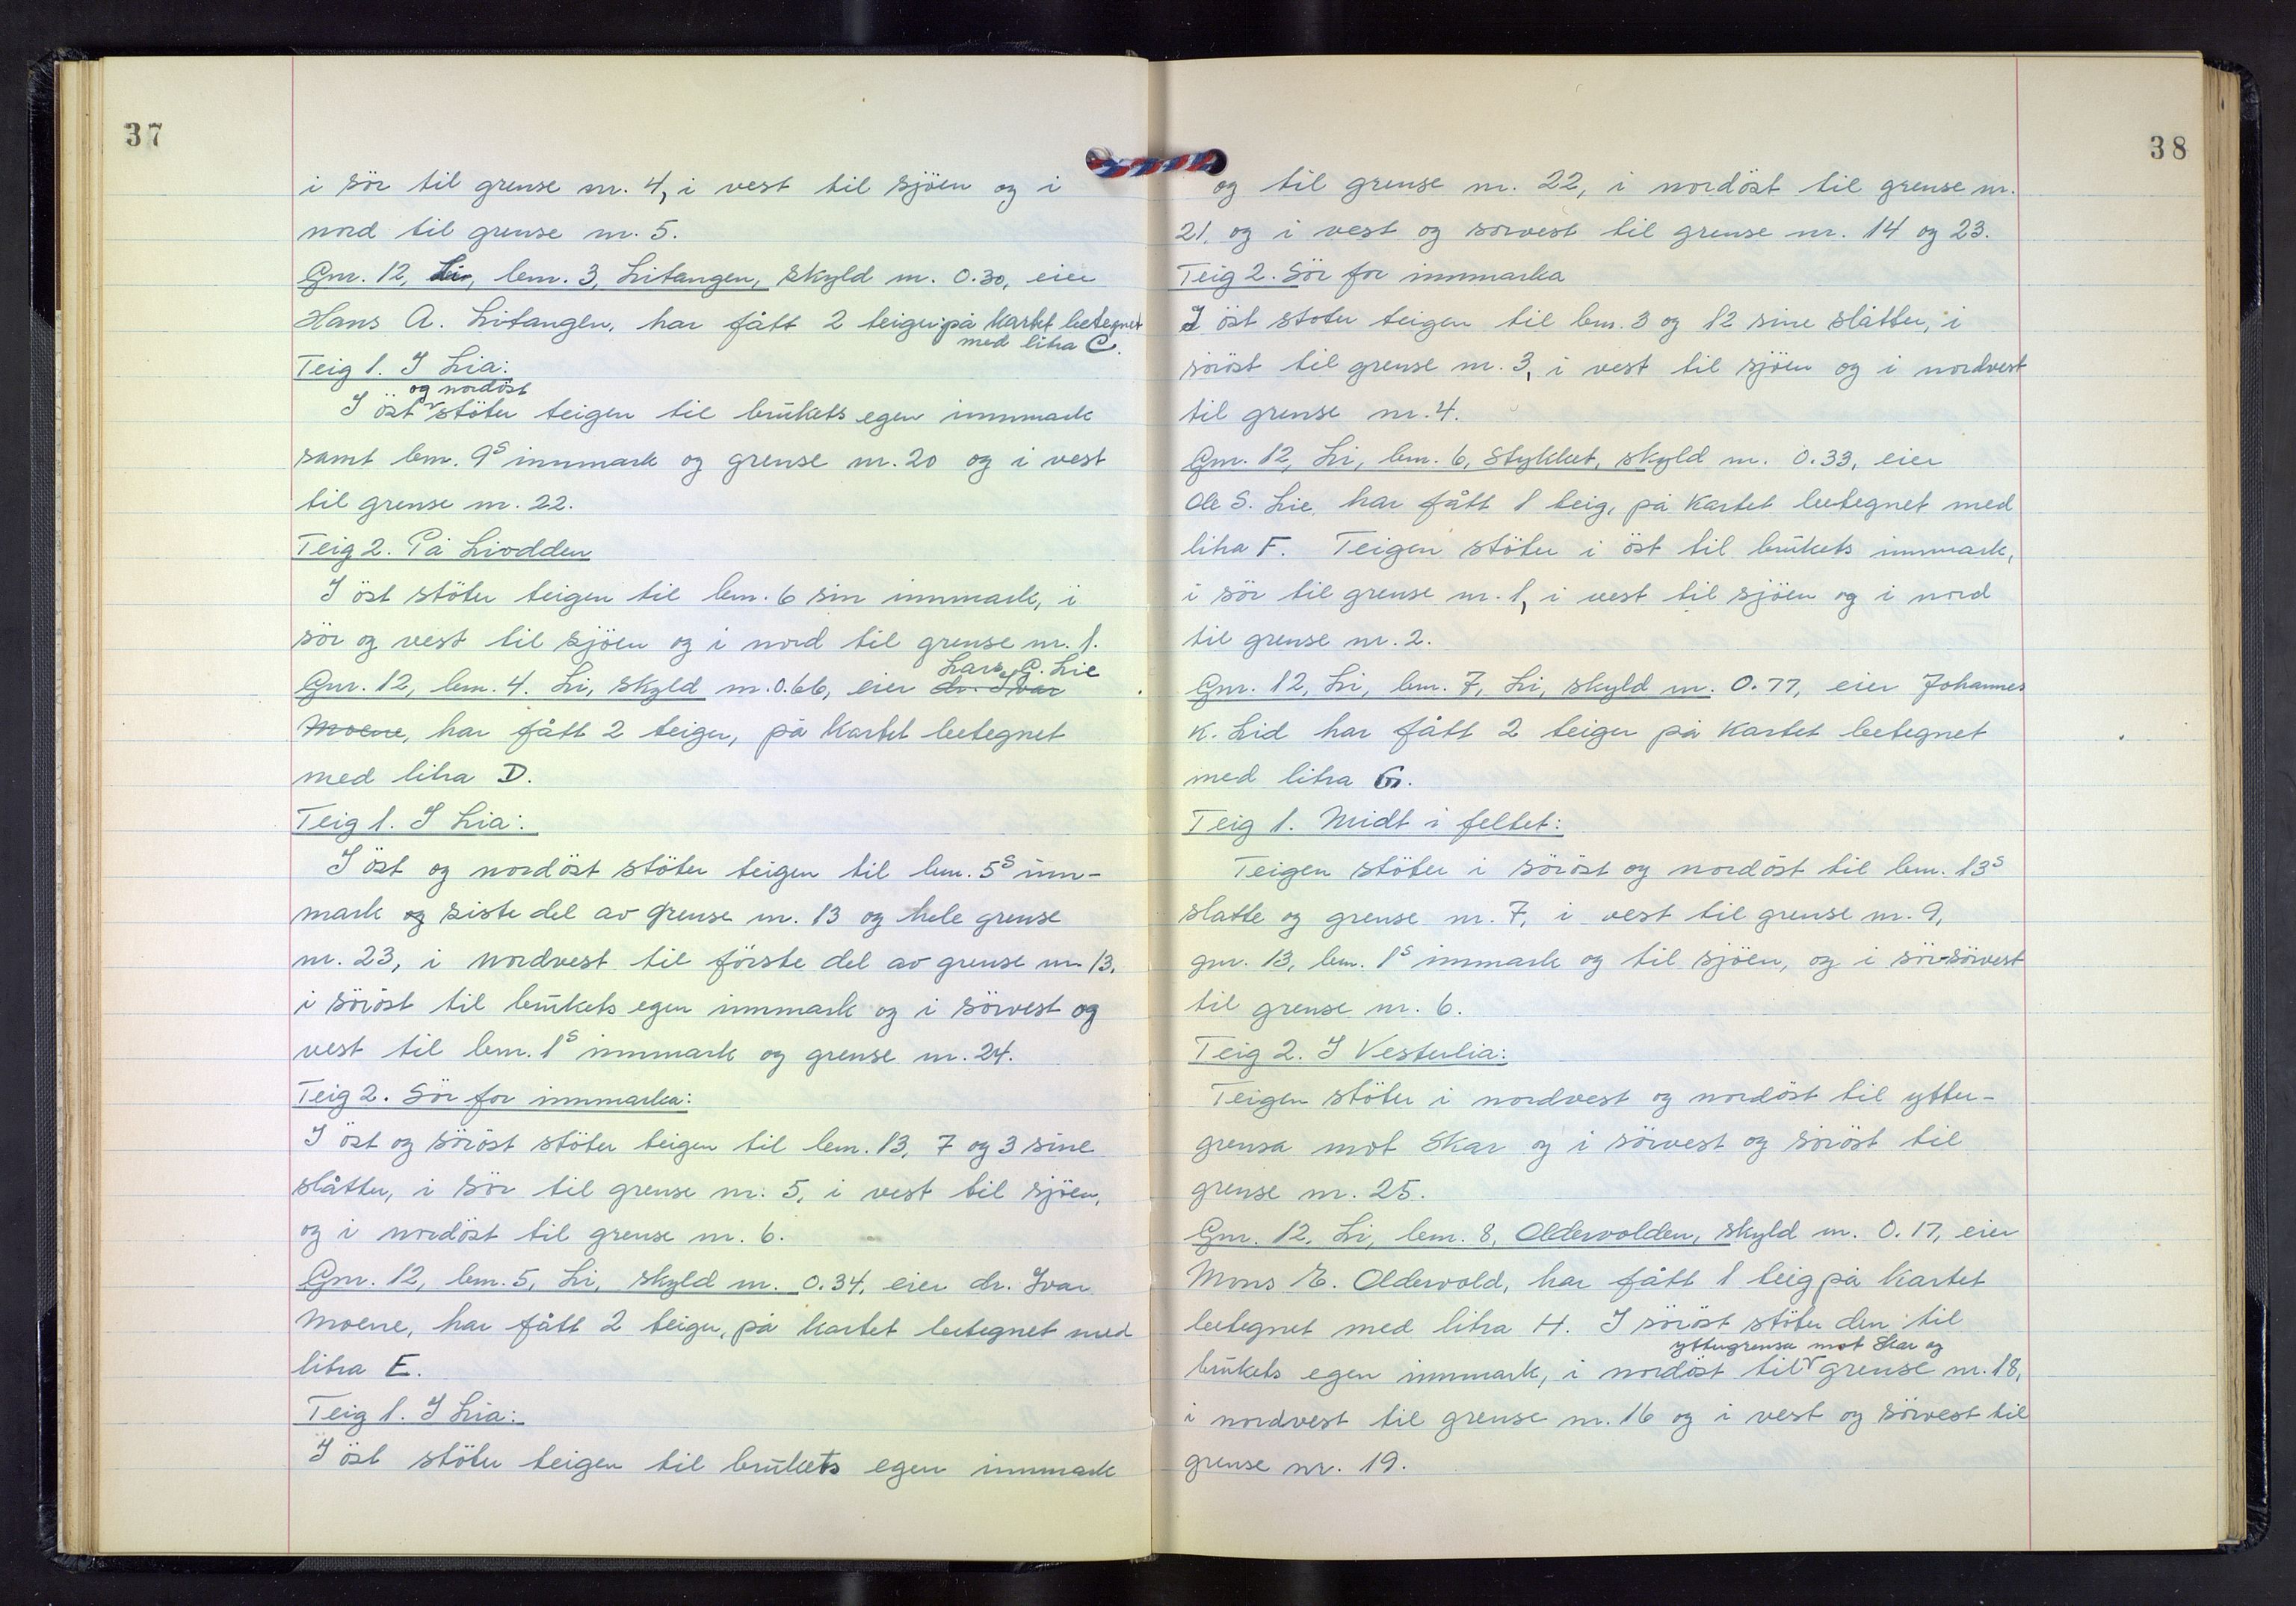 37
i sör til grense nr. 4, i vest til sjöen og i
nord til grense nr. 5.
Gnr. 12, Li, bnr. 3, Litangen, skyld m. 0.30, eier
Hans A. Litangen, har fått 2 teiger på kartet betegnet
med litra C.
Teig 1. I Lia:
og nordöst
I öst stöter teigen til brukets egen innmark
samt bnr. 9s innmark og grense nr. 20 og i vest
til grense nr. 22.
Teig 2. På Liodden
I öst stöter teigen til bnr. 6 sin innmark, i
sör og vest til sjöen og i nord til grense nr. 1.
Lars C. Lie
Gnr. 12, bnr. 4. Li, skyld m. 0.66, eier dr. Ivar
Moene, har fått 2 teiger, på kartet betegnet
med litra D.
Teig 1. I Lia:
I öst og nordöst stöter teigen til bnr. 5s inn-
mark og siste del av grense nr. 13 og hele grense
nr. 23, i nordvest til förste del av grense nr. 13,
i söröst til brukets egen innmark og i sörvest og
vest til bnr. 1s innmark og grense nr. 24.
Teig 2. Sör for innmarka:
I öst og söröst stöter teigen til bnr. 13, 7 og 3 sine
slåtter, i sör til grense nr. 5, i vest til sjöen,
og i nordöst til grense nr. 6.
Gnr. 12, bnr. 5, Li, skyld m. 0.34, eier dr. Ivar
Moene, har fått 2 teiger, på kartet betegnet med
litra E.
Teig 1. I Lia:
I öst stöter teigen til brukets egen innmark
38
og til grense nr. 22, i nordöst til grense nr.
21, og i vest og sörvest til grense nr. 14 og 23.
Teig 2. Sör for innmarka
I öst stöter teigen til bnr. 3 og 12 sine slåtter, i
söröst til grense nr. 3, i vest til sjöen og i nordvest
til grense nr. 4.
Gnr. 12, Li, bnr. 6, Stykket, skyld m. 0.33, eier
Ole S. Lie, har fått 1 teig, på kartet betegnet med
litra F. Teigen stöter i öst til brukets innmark,
i sör til grense nr. 1, i vest til sjöen og i nord
til grense nr. 2.
Gnr. 12, Li, bnr. 7, Li, skyld m. 0.77, eier Johannes
K. Lid har fått 2 teiger på kartet betegnet
med litra G.
Teig 1. Midt i feltet:
Teigen stöter i söröst og nordöst til bnr. 13s
slatte og grense nr. 7, i vest til grense nr. 9,
gnr. 13, bnr. 1s innmark og til sjöen, og i sör-sörvest
til grense nr. 6.
Teig 2. I Vesterlia:
Teigen stöter i nordvest og nordöst til ytter-
grensa mot Skar og i sörvest og söröst til
grense nr. 25.
Gnr. 12, Li, bnr. 8, Oldervolden, skyld m. 0.17, eier
Mons E. Oldervold, har fått 1 teig på kartet
betegnet med litra H. I söröst stöter den til
yttergrensa mot Skar og
brukets egen innmark, i nordöst til grense nr. 18,
i nordvest til grense nr. 16 og i vest og sörvest til
grense nr. 19.